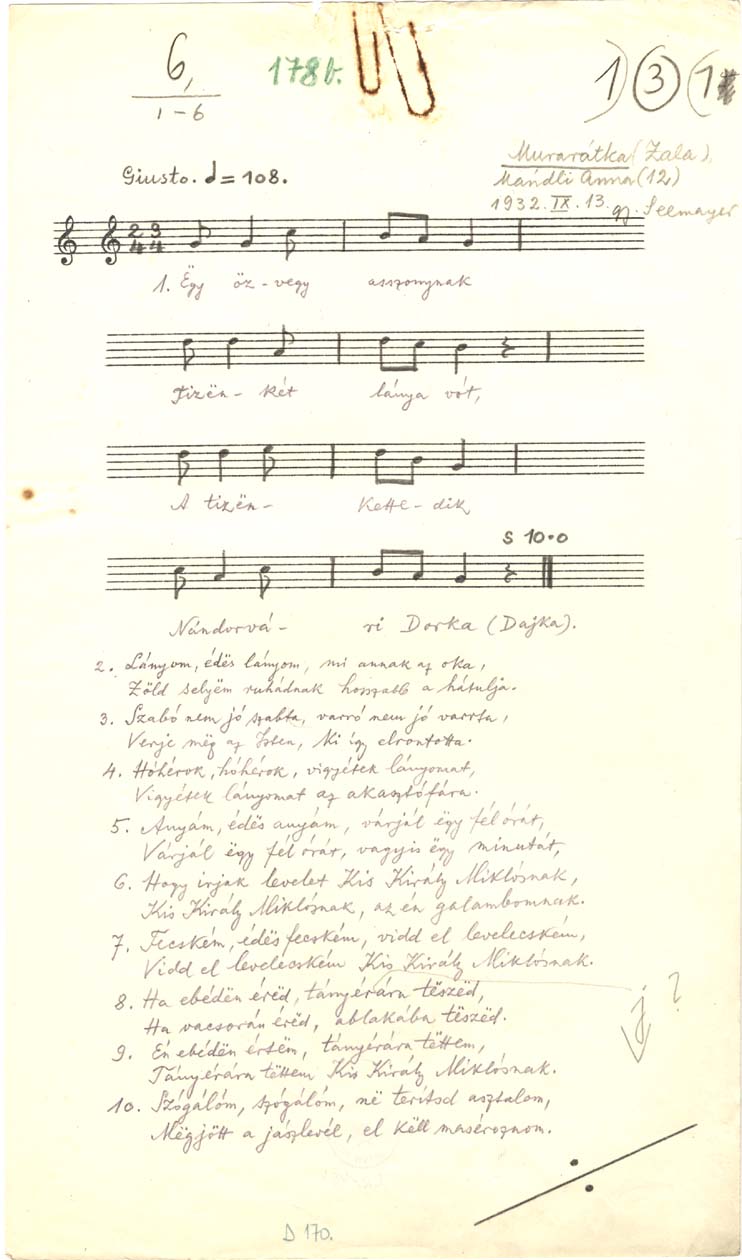 6,
1-6
178b.
1) 3 (1
Murarátka (Zala)
Mándli Anna (12)
1932. IX. 13. gy. Seemayer
Giusto. = 108.
2 3
4 4
1. Ëgy öz-vegy asszonynak
Tizën- két lánya vót,
A tizën- kette-dik
S 10.0
Nándorvá- ri Dorka (Dajka).
2. Lányom, édës lányom, mi annak az oka,
Zöld selyëm ruhádnak hosszabb a hátulja.
3. Szabó nem jó szabta, varró nem jó varrta,
Verje mëg az Isten, ki így elrontotta.
4. Hóhérok, hóhérok, vigyétek lányomat,
Vigyétek lányomat az akasztófára.
5. Anyám, édës anyám, várjál ëgy fél órát,
Várjál ëgy fél órát, vagyis ëgy minutát,
6. Hogy irjak levelet Kis Király Miklósnak,
Kis Király Miklósnak, az én galambomnak.
7. Fecském, édës fecském, vidd el levelecském,
Vidd el levelecském Kis Király Miklósnak.
8. Ha ebédën érëd, tányérára tëszëd,
Ha vacsorán érëd, ablakába tëszëd.
j ?
9. Én ebédën értëm, tányérára tëttem,
Tányérára tëttem Kis Király Miklósnak.
10. Szógálóm, szógálóm, në terítsd asztalom,
Mëgjött a jászlevél, el këll maséroznom.
D 170.